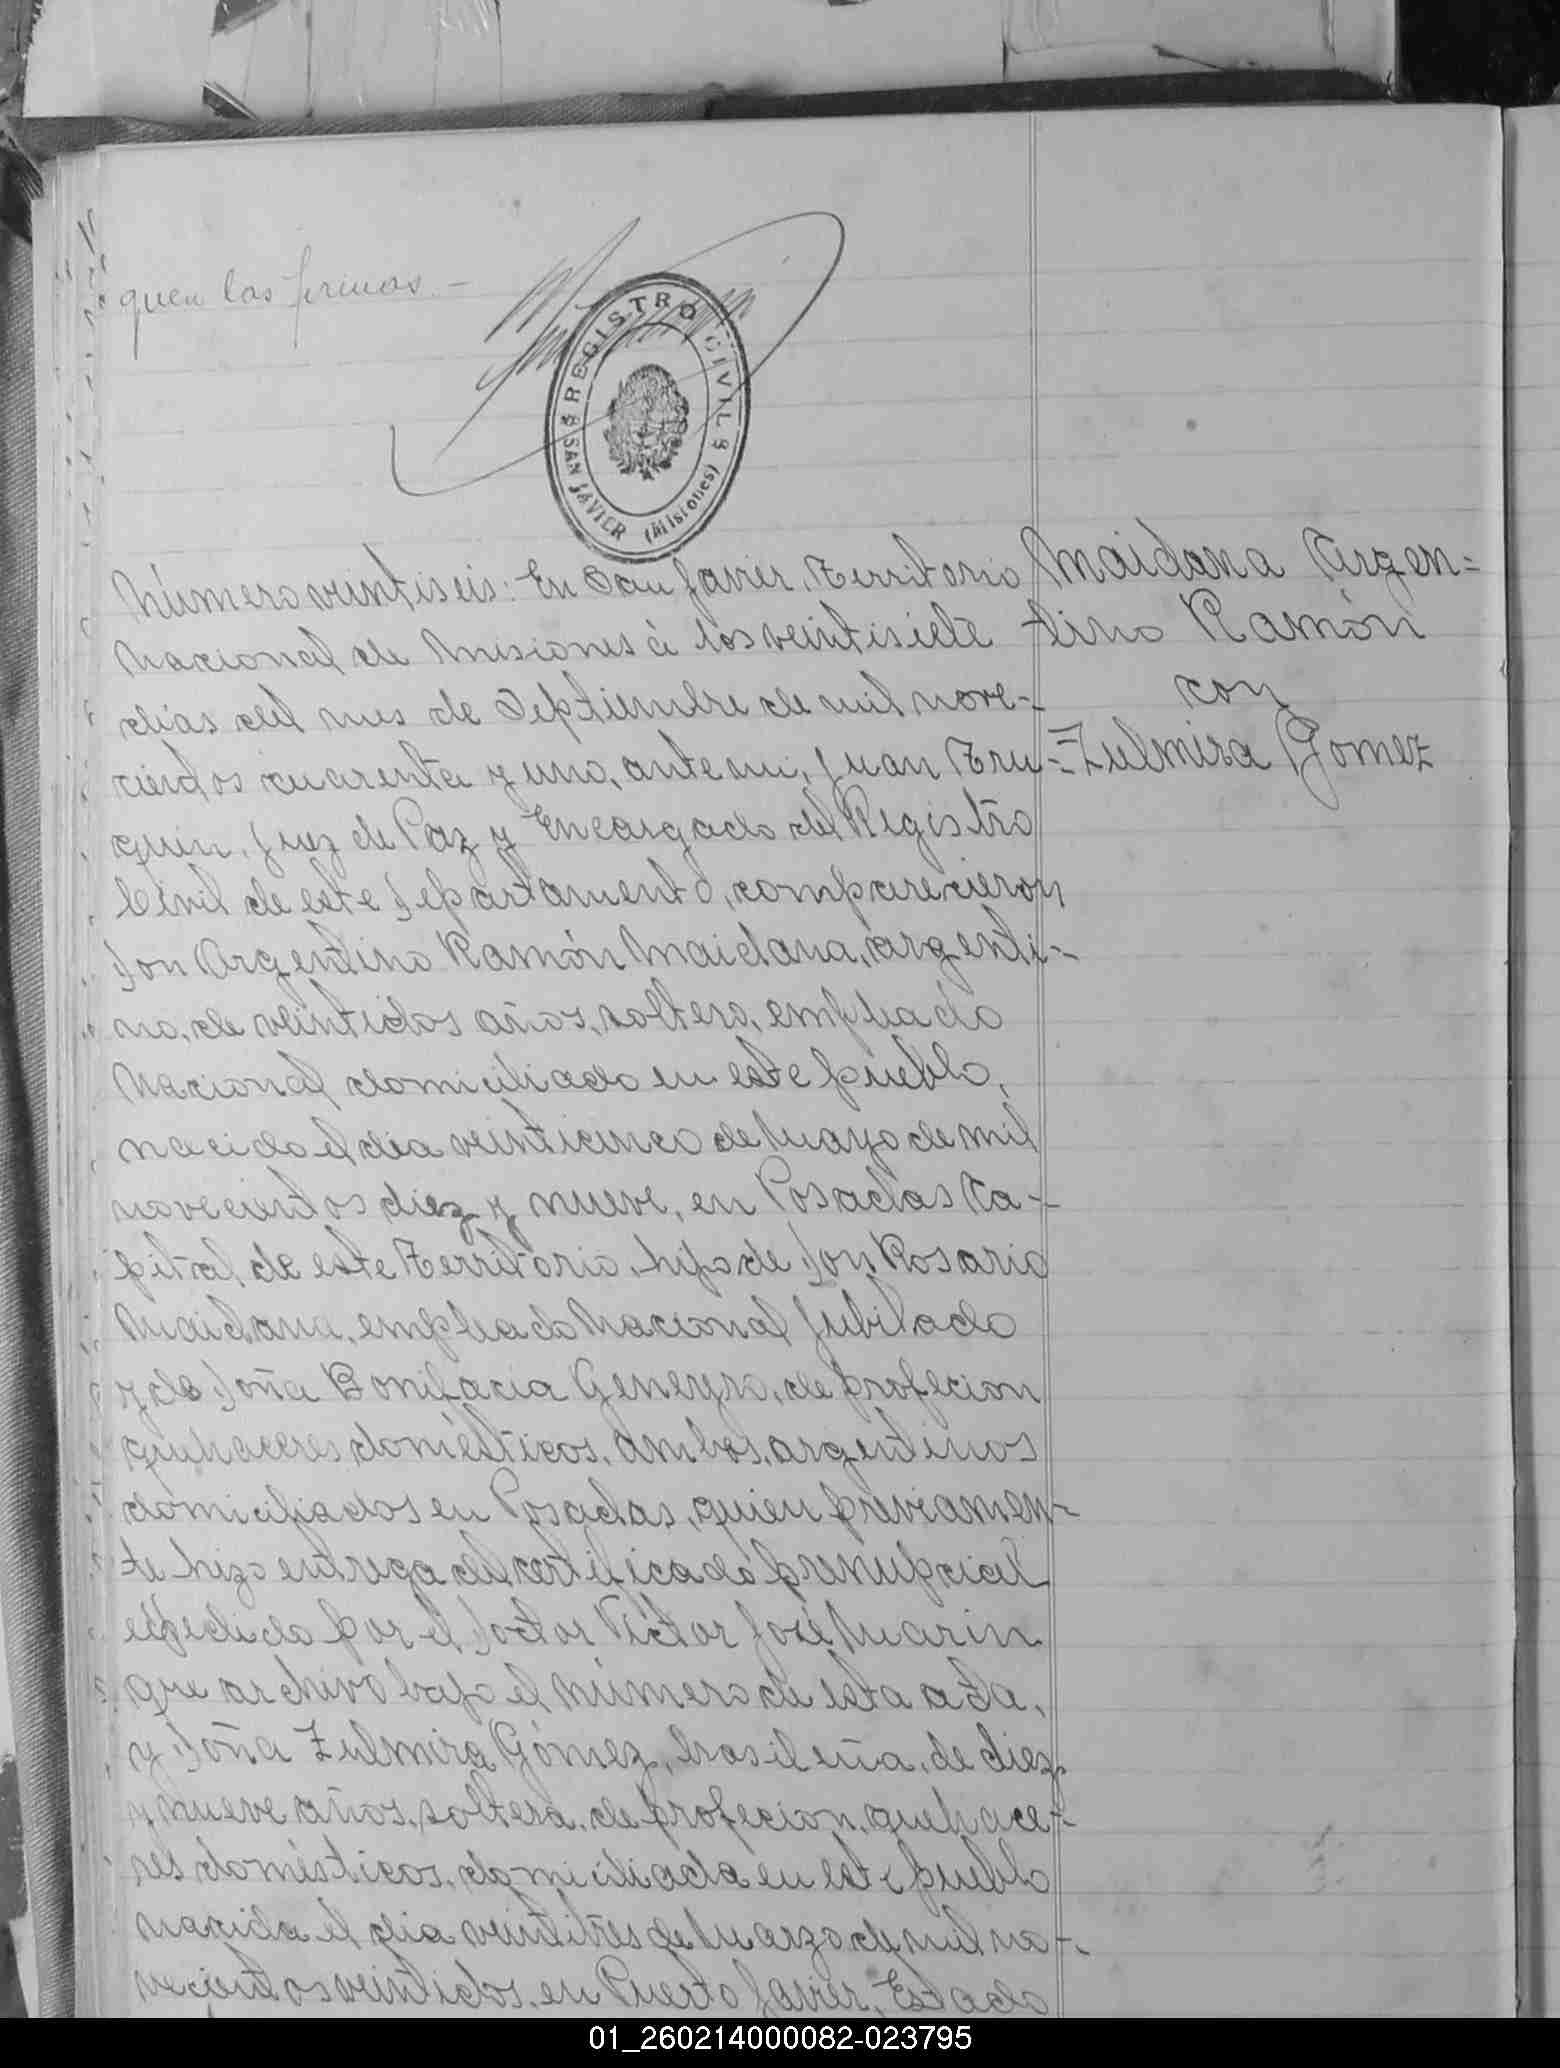 quen las firmas.-
REGISTRO CIVIL
SAN JAVIER (Misiones)
Número veintiseis: En San Javier, Territorio
Nacional de Misiones á los veintisiete
días del mes de Septiembre de mil nove-
cientos cuarenta y uno, ante mi, Juan Tru-
quin, Juez de Paz y Encargado del Registro
Civil de este Departamento, comparecieron
Don Argentino Ramón Maidana, argenti-
no, de veintidos años, soltero, empleado
Nacional domiciliado en este pueblo,
nacido el día veinticinco de Mayo de mil
novecientos diez y nueve, en Posadas Ca-
pital, de este Territorio, hijo de Don Rosario
Maidana, empleado Nacional Jubilado
y de Doña Bonifacia Geneyro, de profecion
quehaceres domésticos, ambos, argentinos
domiciliados en Posadas, quien previamen-
te hizo entrega del certificado prenupcial
expedido por el Doctor Víctor José Marin
que archivo bajo el número de esta acta,
y Doña Zulmira Gómez, brasileña, de diez
y nueve años, soltera, de profecion, quehace-
res domésticos, domiciliada en este pueblo
nacida el día veintitrés de Marzo de mil no-
vecientos veintidos, en Puerto Javier, Estado
Maidana Argen=
tino Ramón
con
=Zulmira Gomez
01_260214000082-023795